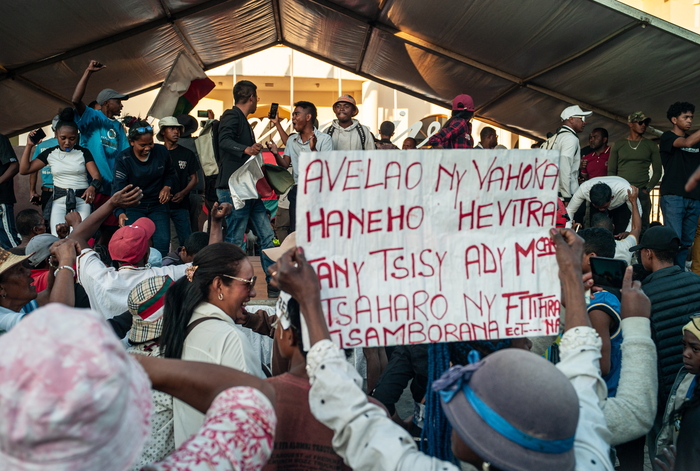 AVELAO NY VAHOKA
HANEHO HEVITRA
TANY TSISY ADY
TSAHARO NY FITIHRA
ISAMBORANA ECT---NA